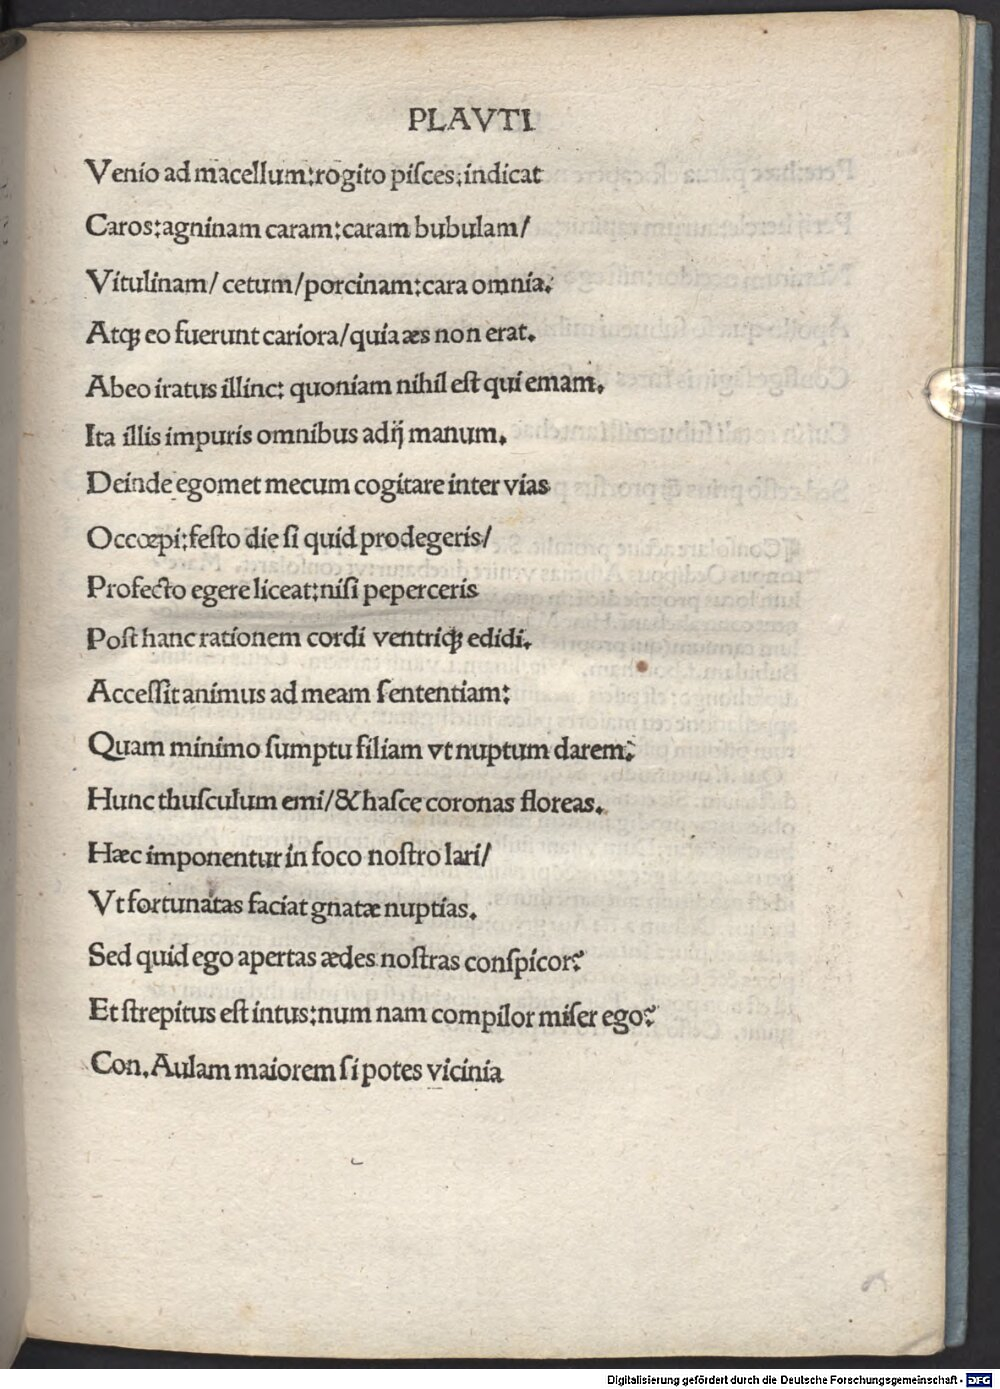 PLAVTI
Venio ad macellum:rogito piſces:indicat
Caros:agninam caram:caram bubulam/
Vitulinam/ cetum/porcinam:cara omnia.
Atqꝫ eo fuerunt cariora/quia æs non erat.
Abeo iratus illinc: quoniam nihil eſt qui emam.
Ita illis impuris omnibus adij manum.
Deinde egomet mecum cogitare inter vias
Occœpi:feſto die ſi quid prodegeris/
Profecto egere liceat:niſi peperceris
Poſt hanc rationem cordi ventriqꝫ edidi.
Acceſſit animus ad meam ſententiam:
Quam minimo ſumptu filiam vt nuptum darem:
Hunc thuſculum emi/&haſce coronas floreas.
Hæc imponentur in foco noſtro lari/
Vt fortunatas faciat gnatæ nuptias.
Sed quid ego apertas ædes noſtras conſpicor?
Et ſtrepitus eſt intus:num nam compilor miſer ego?
Con.Aulam maiorem ſi potes vicinia
Digitalisierung gefördert durch die Deutsche Forschungsgemeinschaft - DFG